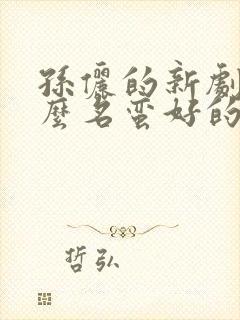 孫儷的新劇
麼名蛮好的
哲弘